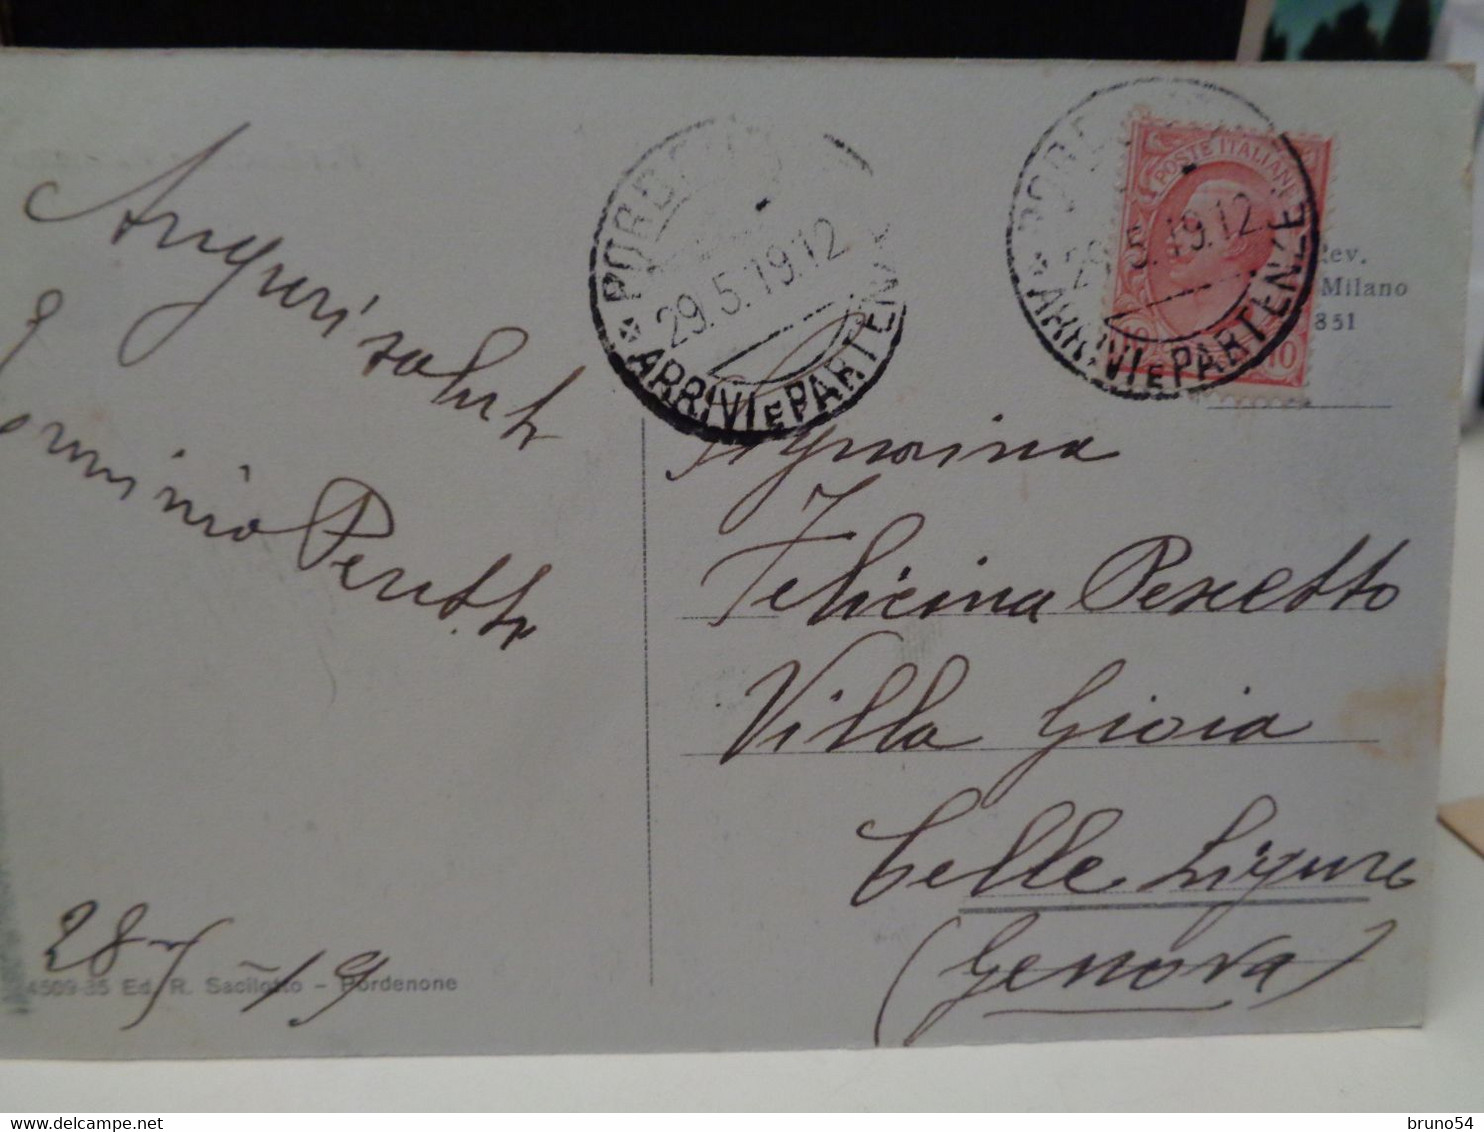 Auguri saluti
Erminio Peretti
28-5-19
4509-35 Ed. R. Sacilotto - Pordenone
PORDENONE
29.5.19.12
ARRIVI E PARTENZE
29.5.19.12
ARRIVI E PARTENZE
POSTE ITALIANE
10 10
Rev.
Milano
351
Signorina
Felicina Pescetto
Villa Gioia
Celle Ligure
(Genova)
bruno54